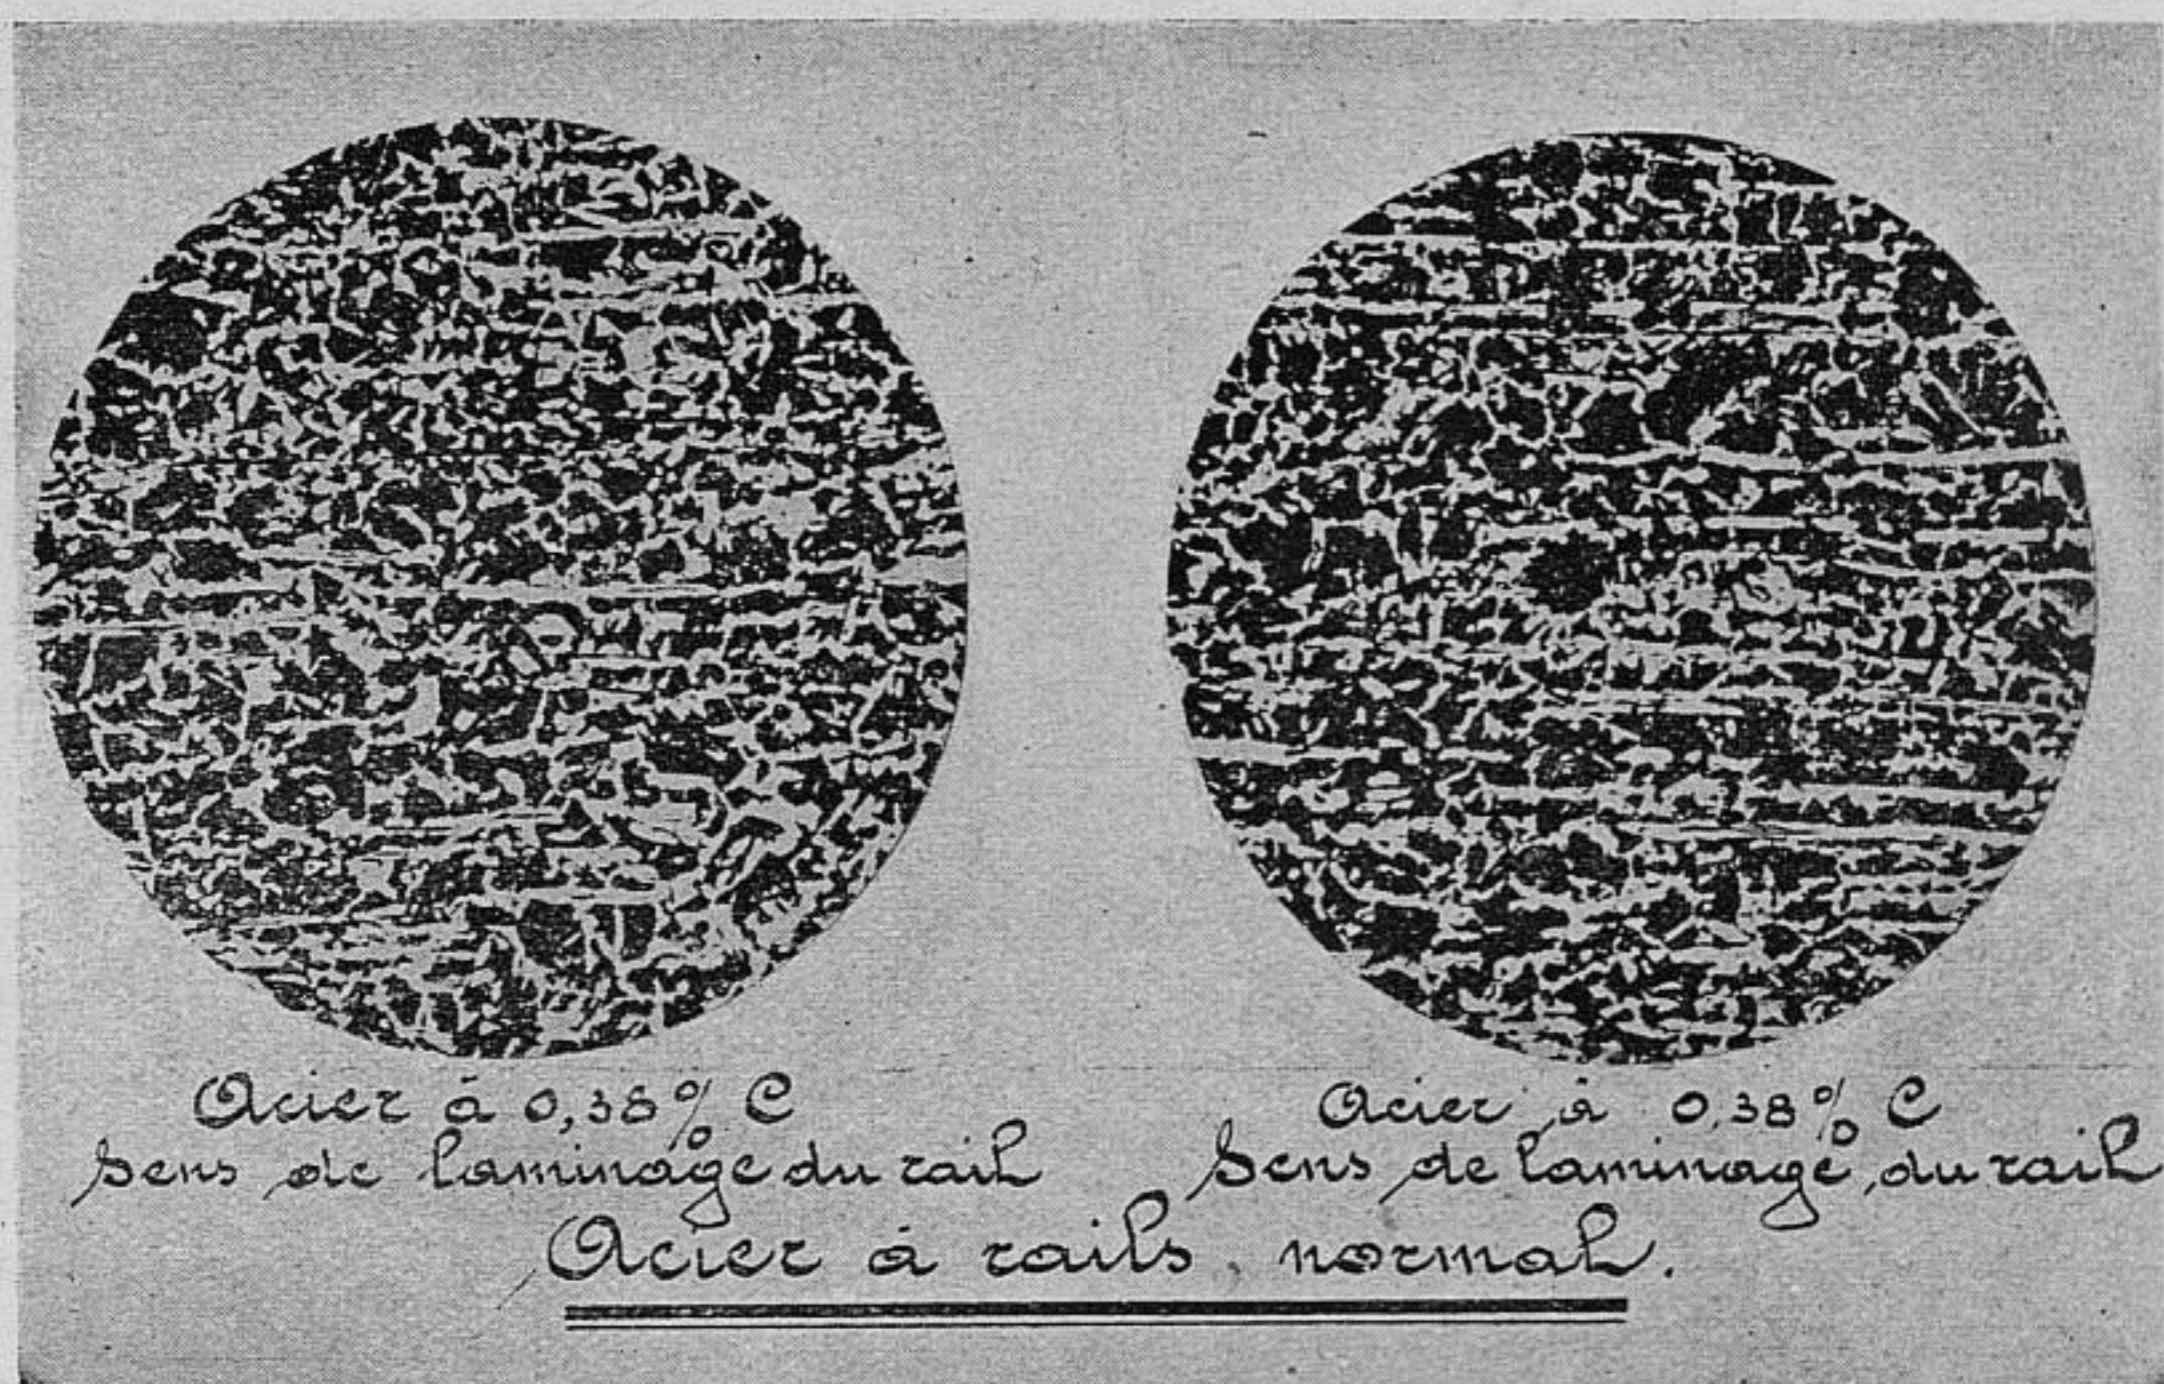 Acier à 0,38% C
Sens de laminage du rail
Acier à 0,38% C
Sens de laminage du rail
Acier à rails normal.